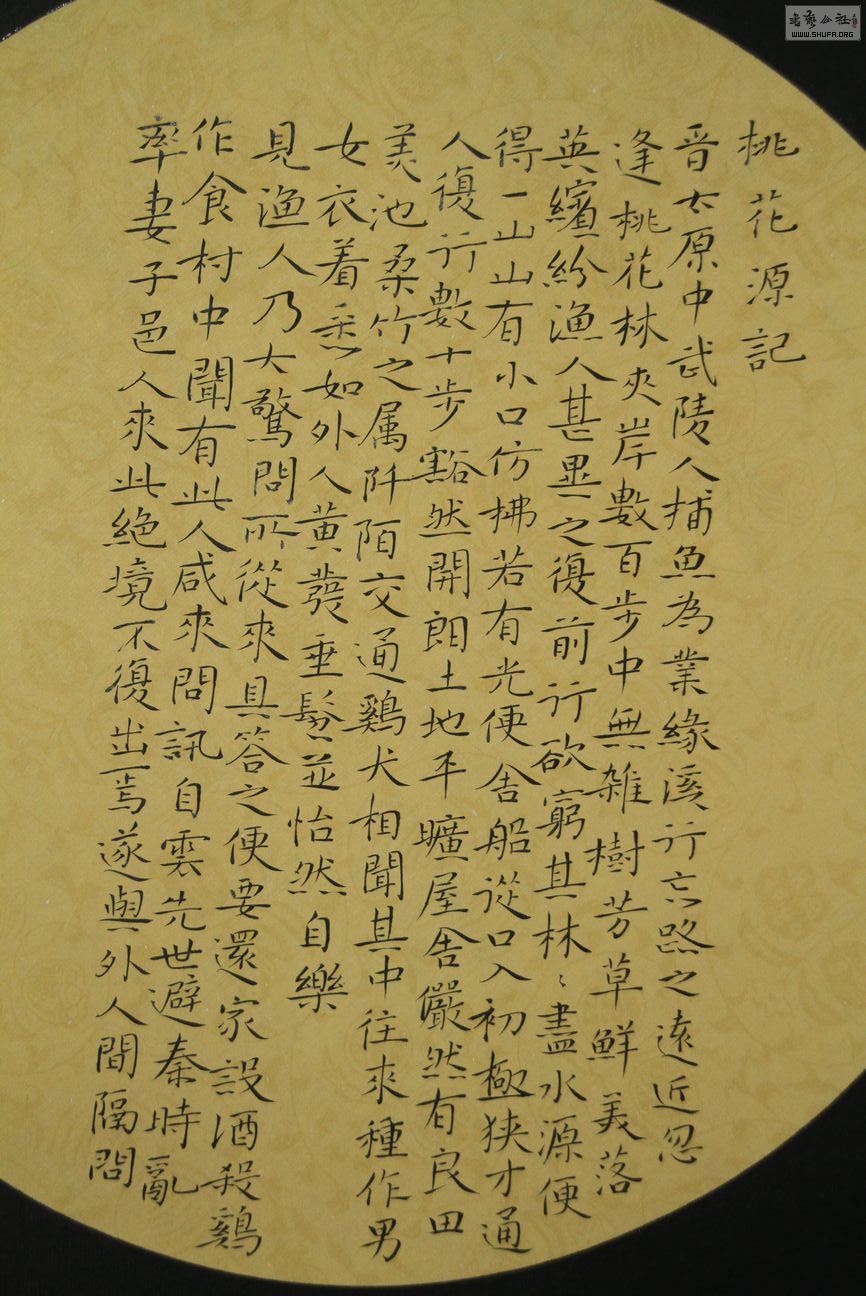 桃花源記
晉太原中武陵人捕魚為業緣溪行忘路之遠近忽
逢桃花林夾岸數百步中無雜樹芳草鮮美落
英繽紛漁人甚異之復前行欲窮其林〻盡水源便
得一山山有小口仿拂若有光便舍船從口入初極狹才通
人復行數十步豁然開朗土地平曠屋舍儼然有良田
美池桑竹之属阡陌交通鷄犬相聞其中往來種作男
女衣着悉如外人黄發垂髫並怡然自樂
見漁人乃大驚問所從來具答之便要還家設酒殺鷄
作食村中聞有此人咸來問訊自雲先世避秦時亂
率妻子邑人來此絶境不復出焉遂與外人間隔問
書藝公社
WWW.SHUFA.ORG